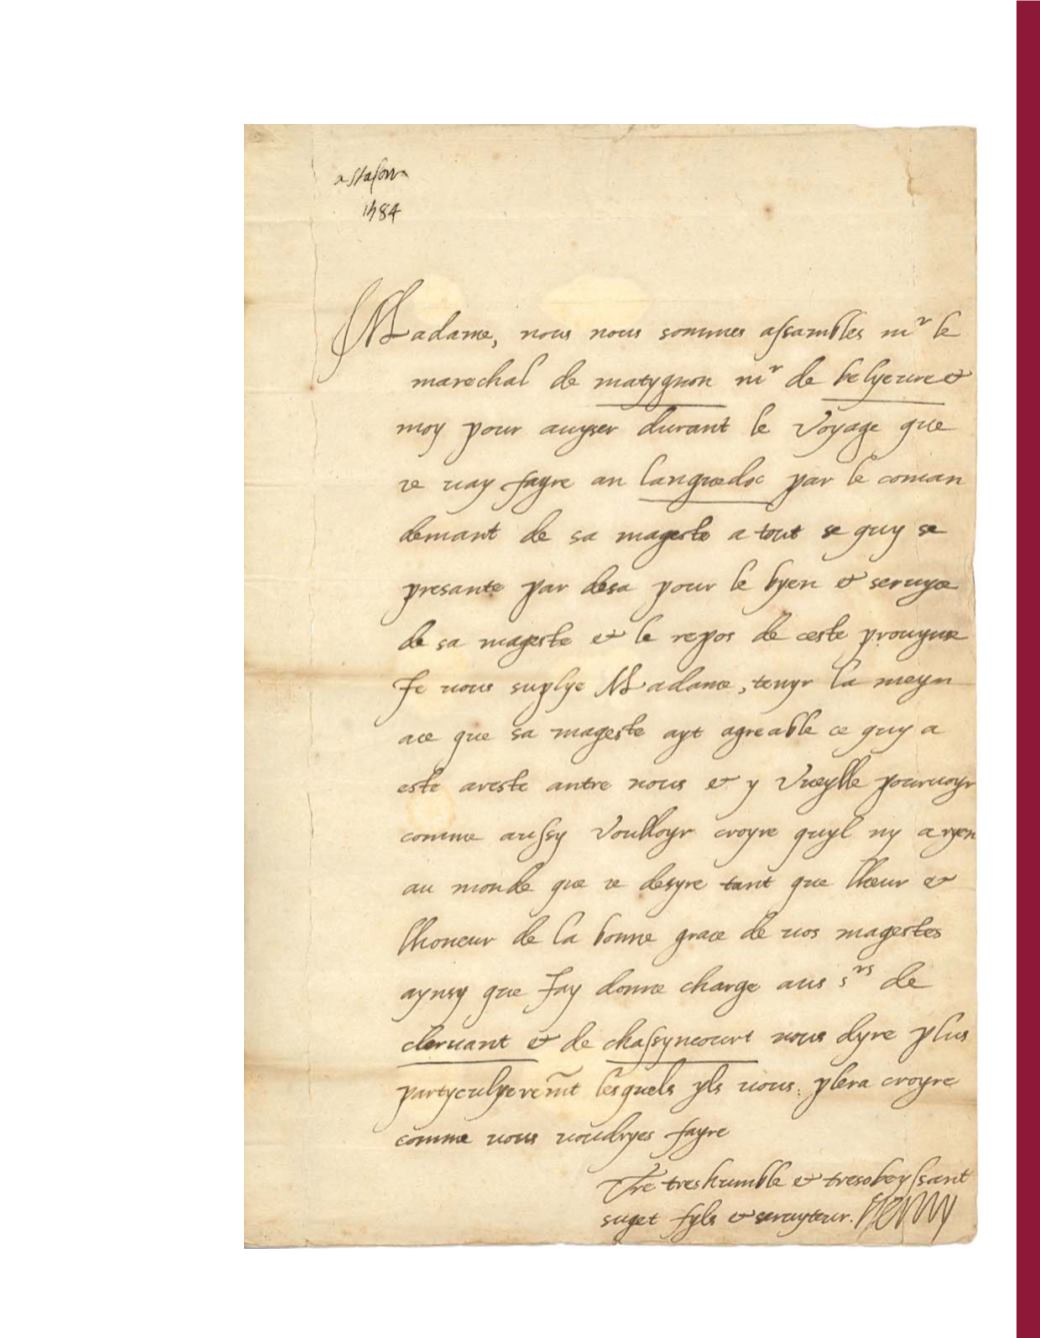 1584
Madame, nous nous sommes assambles mr le
marechal de matygnon mr de belyevre et
moy pour auyser durant le Voyage que
ie vay fayre an languedoc par le coman
demant de sa mageste a tout se quy se
presante par desa pour le byen et seruyce
de sa mageste et le repos de ceste prouynce
Je vous suplye Madame, tenyr la meyn
ace que sa mageste ayt agreable ce quy a
este areste antre nous et y Vueylle pouruoyr
comme aussy Voulloyr croyre quyl ny a ryen
au monde que ie desyre tant que lheur et
lhoneur de la bonne grace de vos magestes
aynsy que Jay donne charge aus srs de
cleruant et de chassyncourt vous dyre plus
partyculyeremt lesquels yls vous plera croyre
comme vous voudryes fayre
Vre treshumble et tresobeyssant
suget fyls et seruyteur. Henry